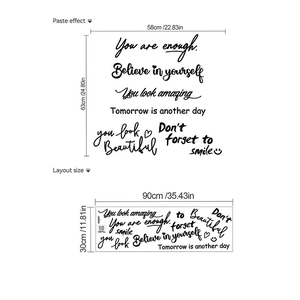 Paste effect
58cm/22.83in
63cm/24.80in
You are enough.
Believe in yourself
You look amazing
Tomorrow is another day
you look
Beautiful
Don't
forget to
smile
Layout size
90cm/35.43in
30cm/11.81in
You look amazing
You are enough.
smile
you look
to
forget
Beautiful
Don't
Believe in yourself
Tomorrow is another day